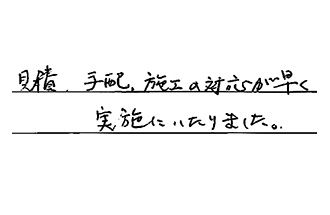 見積、手配、施工の対応が早く
実施にいたりました。